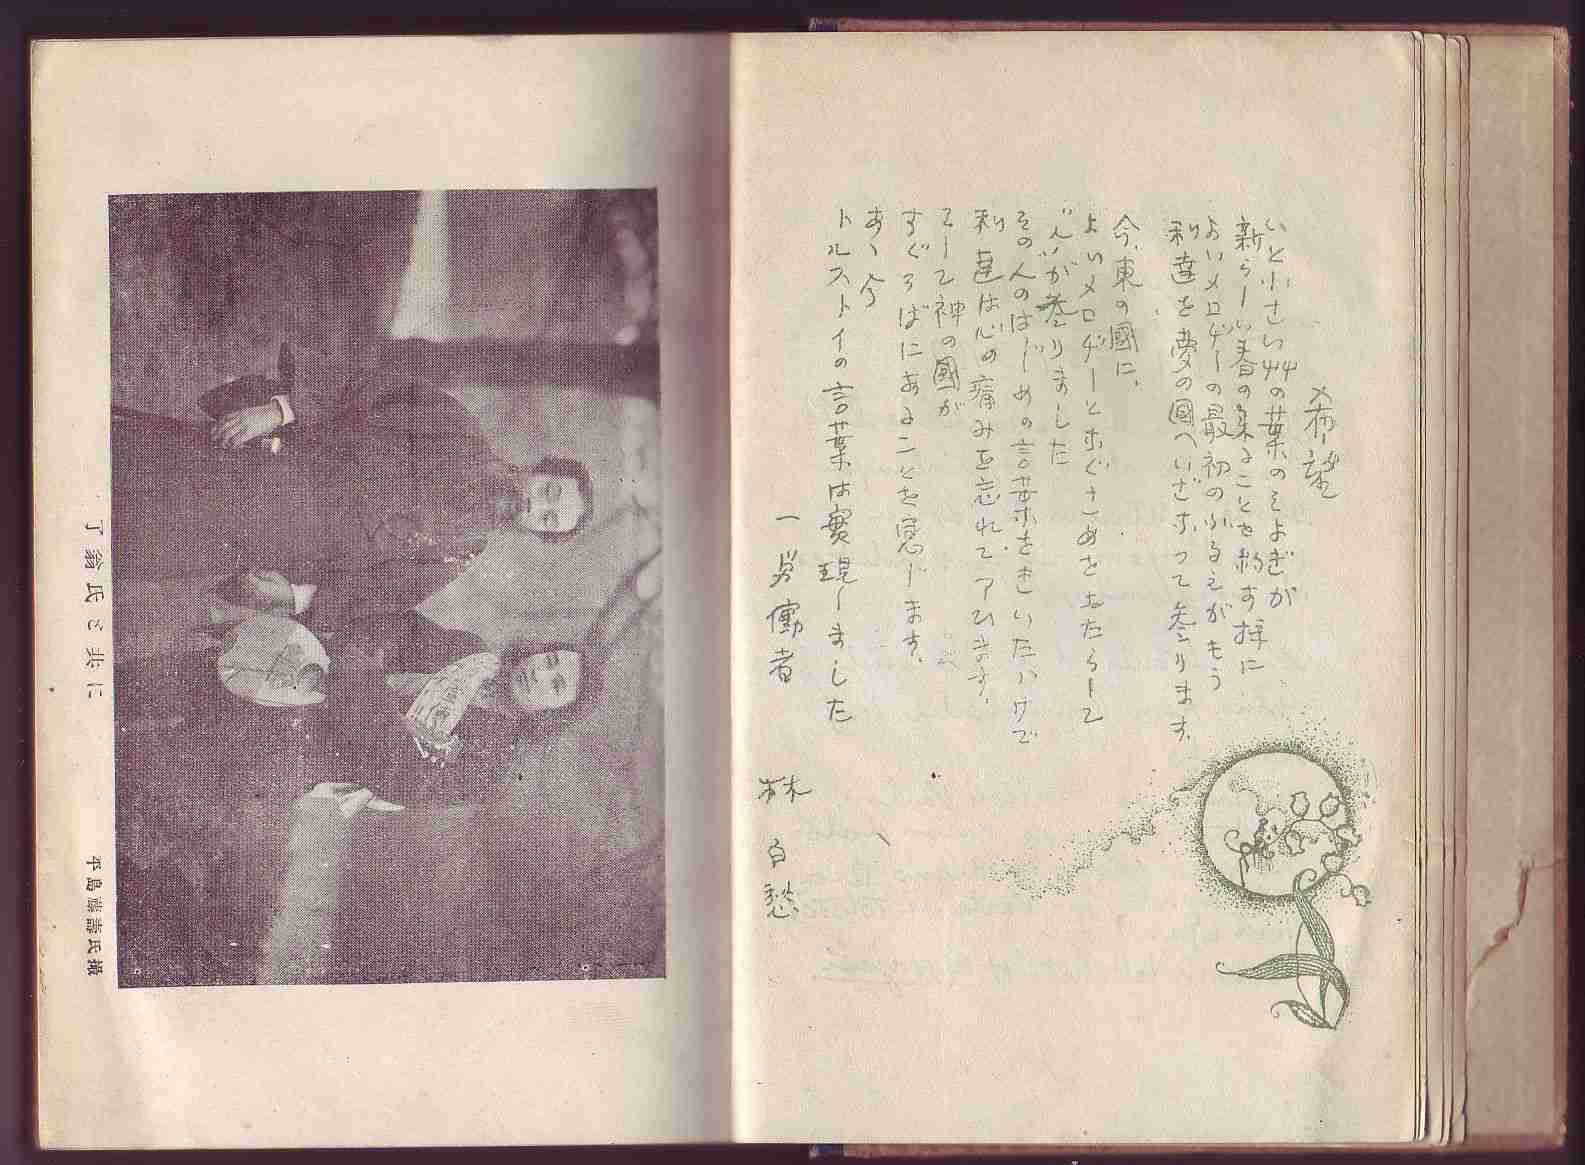 希望
いと小さい艸の葉のそよぎが
新らしい春の来ることを約す様に
よいメロヂーの最初のふるえがもう
私達を夢の國へいざなって参ります。
今、東の國に、
よいメロヂーとなぐさめをもたらして
が参りました
その人のはじめの言葉をきいただけで
私達は心の痛みを忘れて
そして神の國が
すぐそばにあることを感じます。
あゝ今
トルストイの言葉は實現しました
一労働者
林 白愁
丁翁氏と共に
平島 壽氏撮